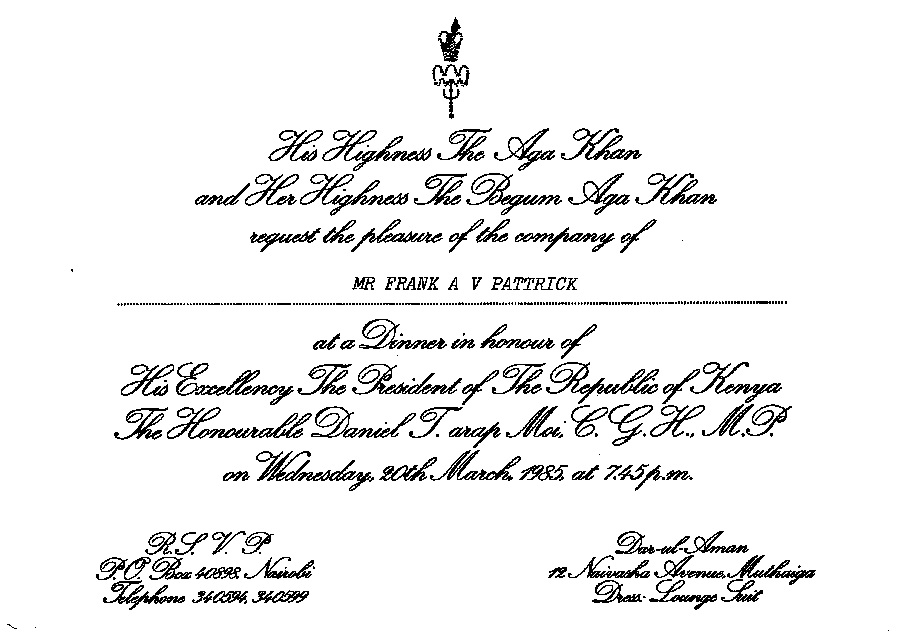 His Highness The Aga Khan
and Her Highness The Begum Aga Khan
request the pleasure of the company of
MR FRANK A V PATTRICK
at a Dinner in honour of
His Excellency The President of The Republic of Kenya
The Honourable Daniel T. arap Moi, C. G. H., M.P.
on Wednesday, 20th March, 1985, at 7.45 p.m.
R. S. V. P.
P.O. Box 40898, Nairobi
Telephone 340594, 340599
Dar-ul-Aman
12 Naivasha Avenue, Muthaiga
Dress: Lounge Suit